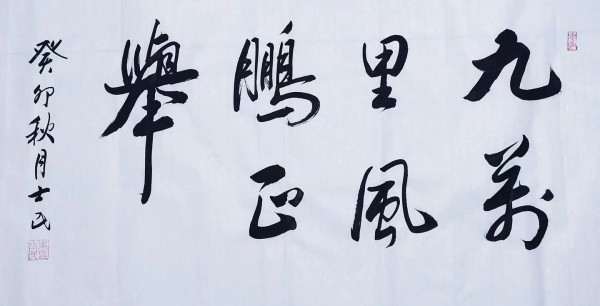 九萬
里風
鵬正
舉
癸卯秋月士民